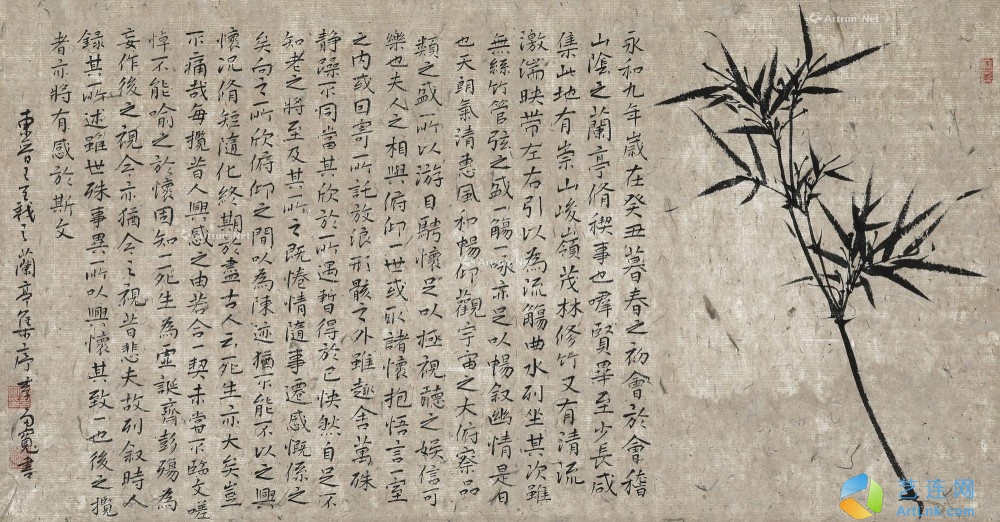 永和九年歲在癸丑暮春之初會於會稽
山陰之蘭亭脩稧事也羣賢畢至少長咸
集此地有崇山峻嶺茂林修竹又有清流
激湍映帶左右引以為流觴曲水列坐其次雖
無絲竹管弦之盛一觴一詠亦足以暢敘幽情是日
也天朗氣清惠風和暢仰觀宇宙之大俯察品
類之盛所以游目騁懷足以極視聽之娛信可
樂也夫人之相與俯仰一世或取諸懷抱悟言一室
之內或因寄所託放浪形骸之外雖趣舍萬殊
靜躁不同當其欣於所遇暫得於己快然自足不
知老之將至及其所之既惓情隨事遷感慨係之
矣向之所欣俯仰之間以為陳迹猶不能不以之興
懷況脩短隨化終期於盡古人云死生亦大矣豈
不痛哉每攬昔人興感之由若合一契未嘗不臨文嗟
悼不能喻之於懷固知一死生為虛誕齊彭殤為
妄作後之視今亦猶今之視昔悲夫故列敘時人
錄其所述雖世殊事異所以興懷其致一也後之攬
者亦將有感於斯文
東晉王羲之蘭亭集序李向寬書
Artron.Net
艺连网